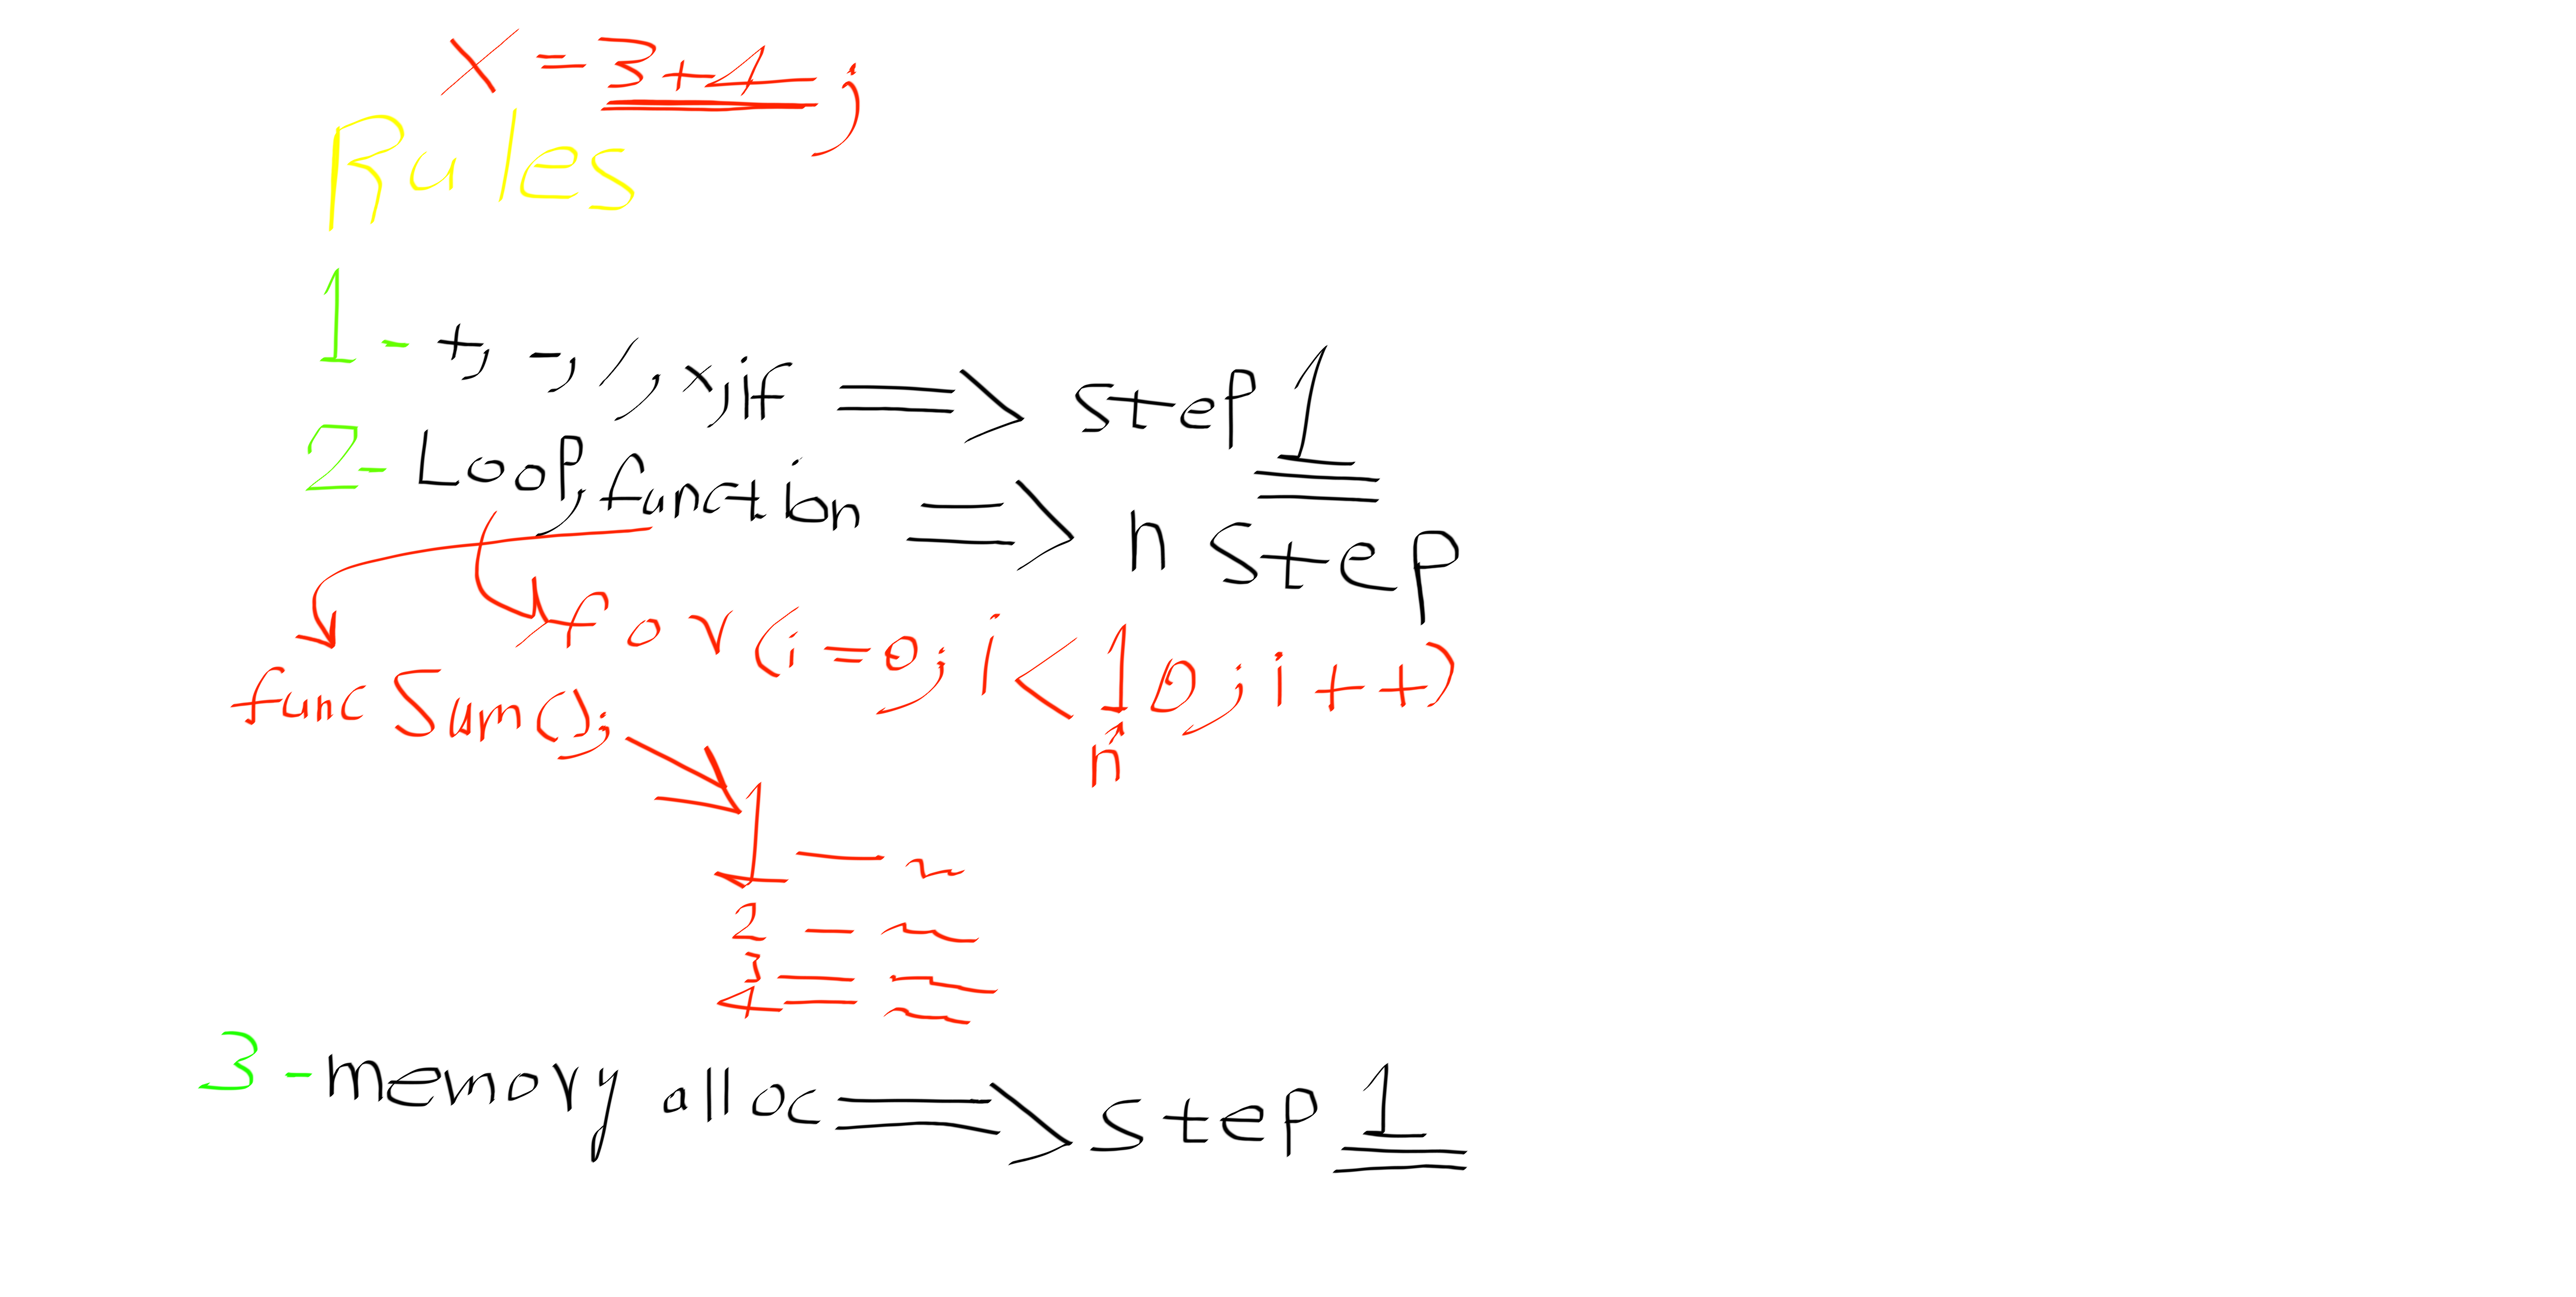 x = 3+4 ;
Rules
1 - +, -, /, x, if => step 1
2- Loop, function => n step
for (i=0; i<10; i++)
n
func Sum();
1
2
3
4
3 - memory alloc => step 1